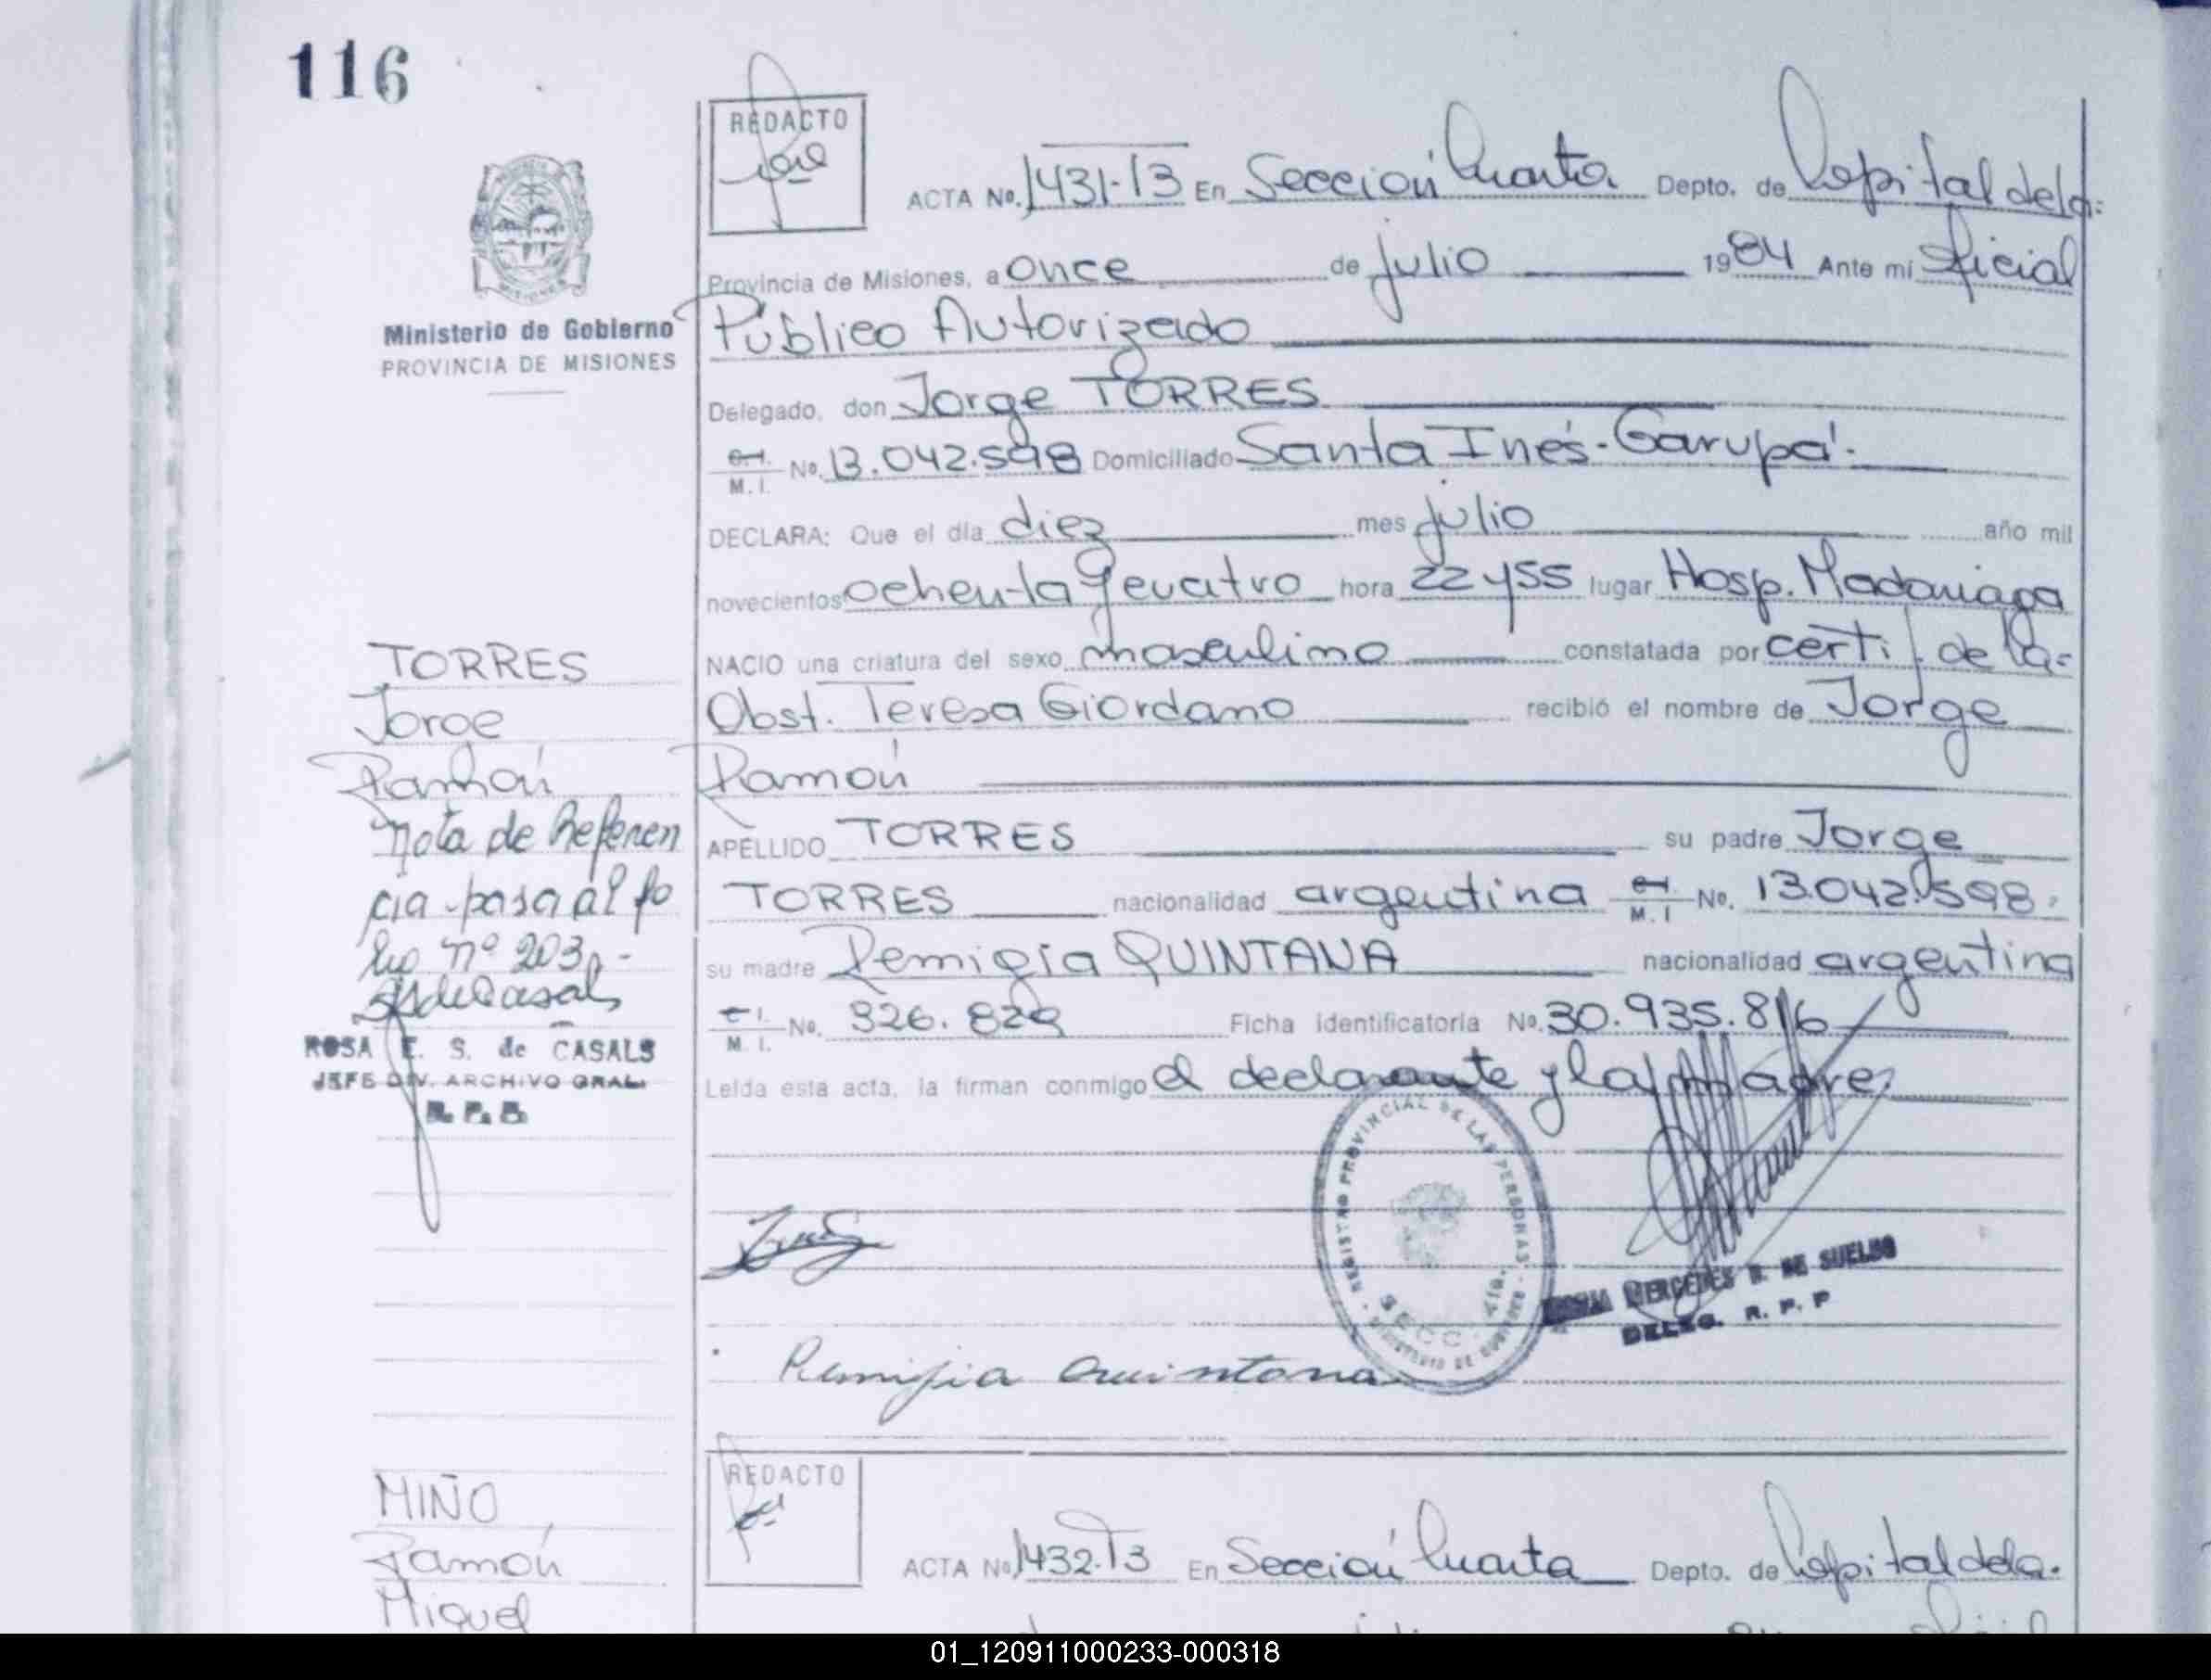 116
REDACTO
ACTA No. 1431-T3 En Sección Cuarta Depto. de Capital de la
Provincia de Misiones, a once de julio 1984 Ante mi Oficial
Público Autorizado
Ministerio de Gobierno
PROVINCIA DE MISIONES
Delegado, don Jorge TORRES
C.I. M.I. No. 13.042.598 Domiciliado Santa Inés-Garupá.
DECLARA: Que el día diez mes julio año mil
novecientos ochenta y cuatro hora 22 y 55 lugar Hosp. Madariaga
NACIO una criatura del sexo masculino constatada por certif. de la
Obst. Teresa Giordano recibió el nombre de Jorge
Ramón
APELLIDO TORRES su padre Jorge
TORRES nacionalidad argentina C.I. M.I No. 13.042.598.
su madre Remigia QUINTANA nacionalidad argentina
C.I. M.I. No. 326.829 Ficha identificatoria No. 30.935.816
Leída esta acta, la firman conmigo el declarante y la madre
TORRES
Jorge
Ramón
Nota de Referen
cia pasa al fo
lio nº 203.-
ROSA E. S. de CASALS
JEFE DIV. ARCHIVO GRAL.
R. P. P.
REGISTRO PROVINCIAL DE LAS PERSONAS
SECC. 4ta.
MINISTERIO DE GOBIERNO
MERCEDES B. DE SUELDO
DELEG. R. P. P
Remigia Quintana
MIÑO
Ramón
Miguel
REDACTO
ACTA No. 1432-T3 En Sección Cuarta Depto. de Capital de la.
01_120911000233-000318